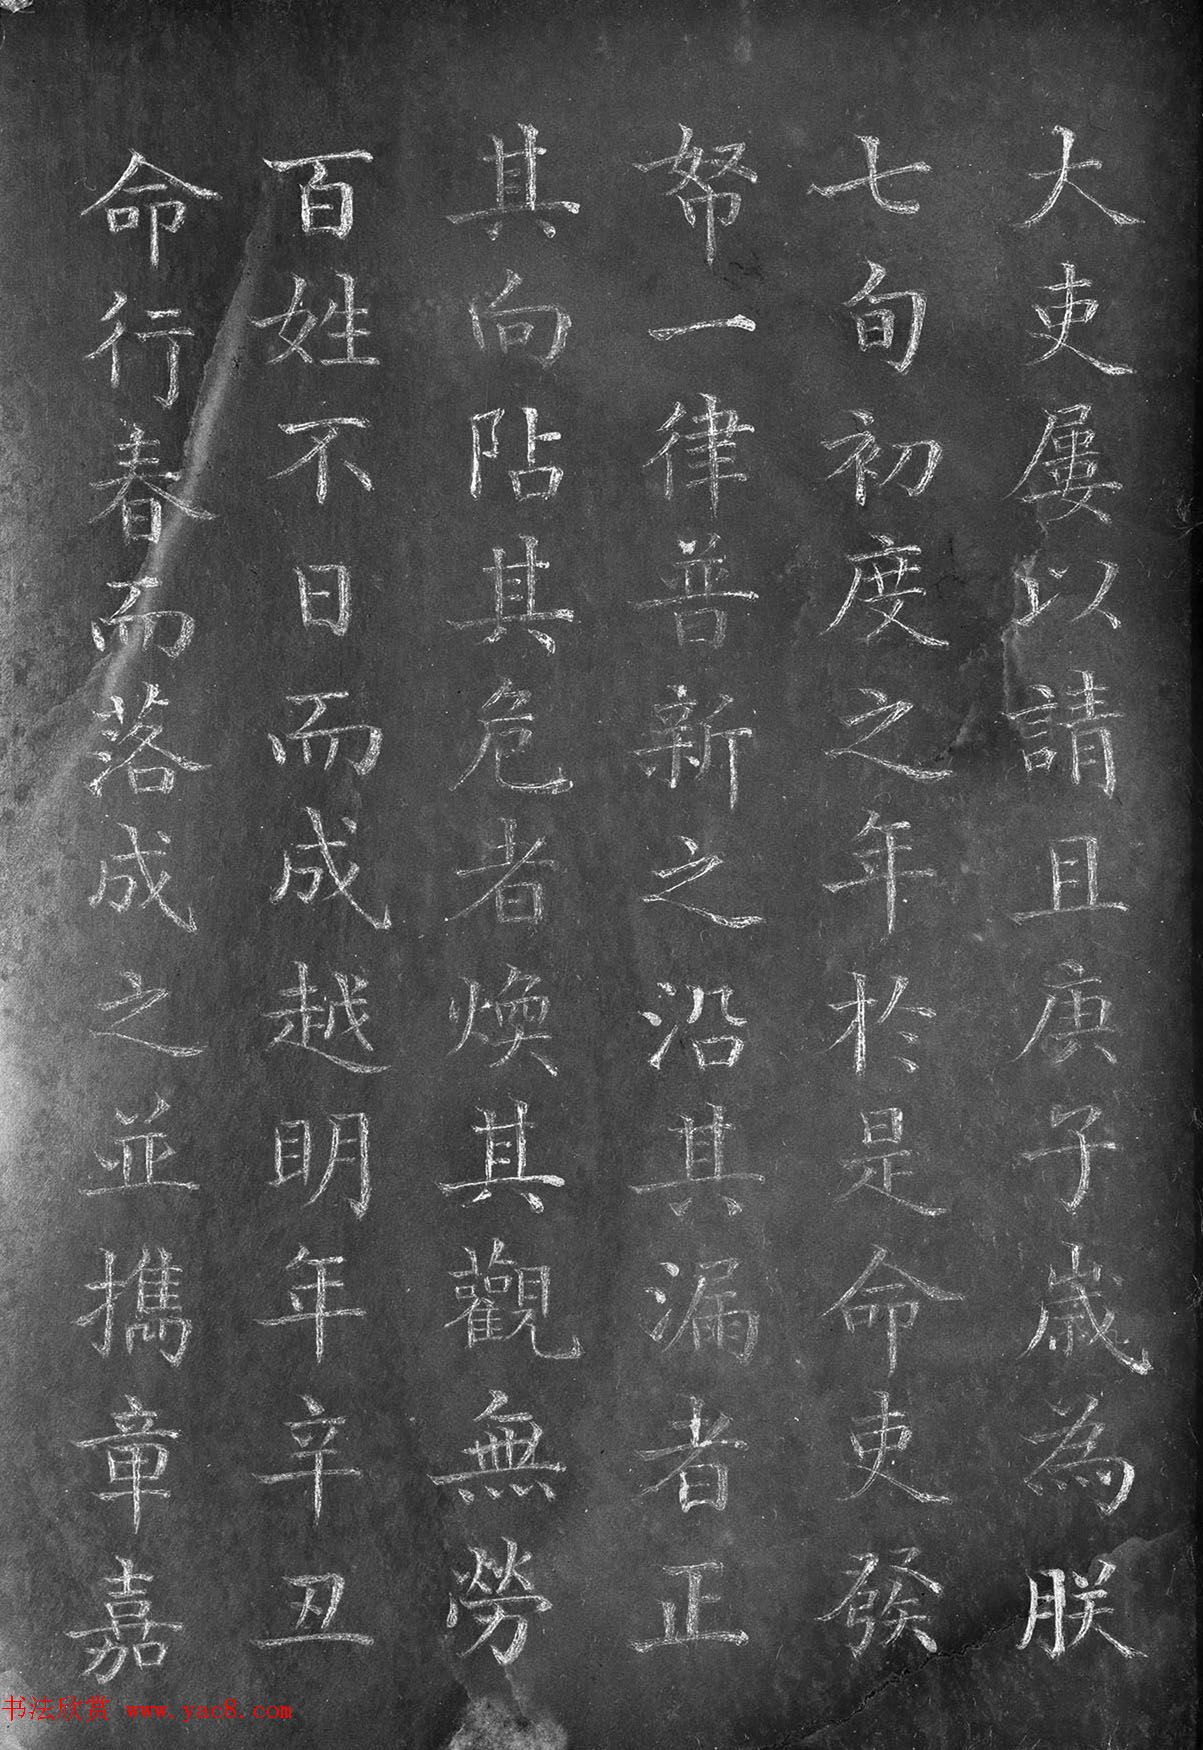 大吏屢以請且庚子歲為朕
七旬初度之年於是命吏發
帑一律普新之沿其漏者正
其向阽其危者煥其觀無勞
百姓不日而成越明年辛丑
命行春而落成之並攜章嘉
书法欣赏 www.yac8.com